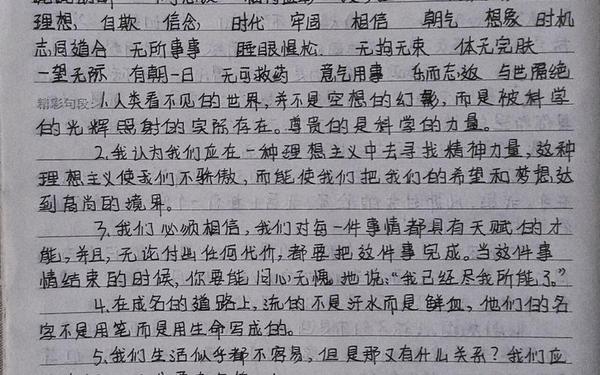 理想, 自欺 信念, 时代 牢固 相信 朝气 想象 时机
志同道合 无所事事 睡眼惺忪 无拘无束 体无完肤
一望无际 有朝一日 无可救药 意气用事 乐而忘返 与世隔绝
精彩句段 1.人类看不见的世界,并不是空想的幻影,而是被科学
的光辉照射的实际存在。尊贵的是科学的力量。
2.我认为我们应在一种理想主义中去寻找精神力量,这种
理想主义使我们不骄傲,而能使我们把我们的希望和梦想达
到高尚的境界。
3.我们必须相信,我们对每一件事情都具有天赋的才
能,并且,无论付出任何代价,都要把这件事完成。当这件事
情结束的时候,你要能问心无愧地说:“我已经尽我所能了。”
4.在成名的道路上,流的不是汗水而是鲜血,他们的名
字不是用笔而是用生命写成的。
5.我们生活似乎都不容易,但是那又有什么关系?我们应